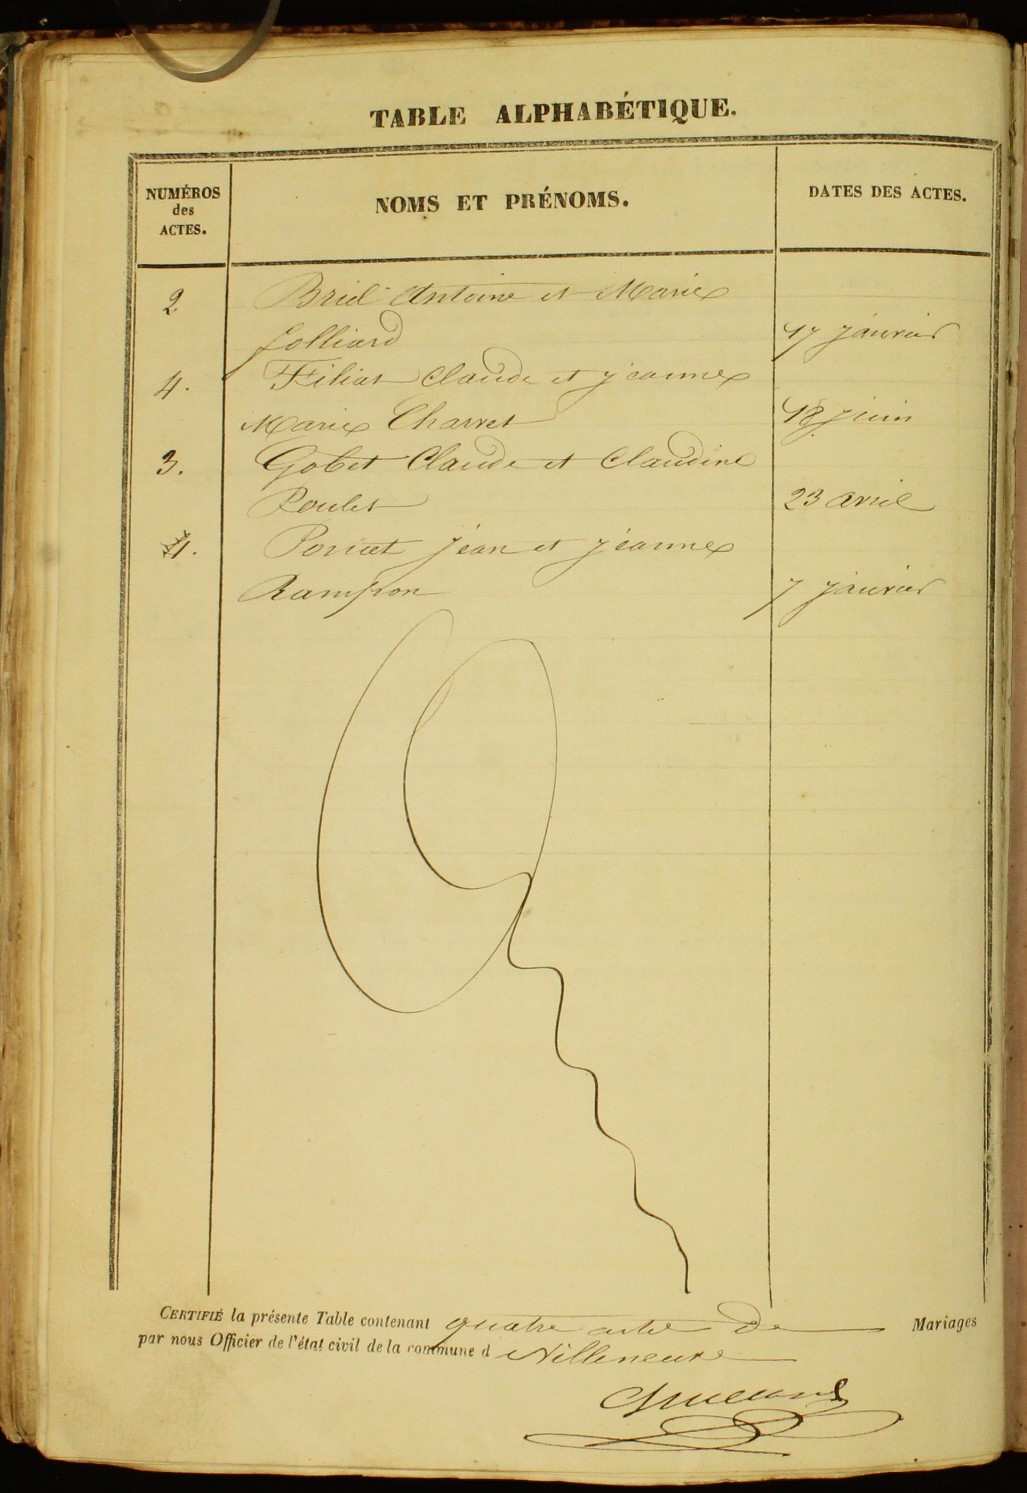 TABLE ALPHABÉTIQUE.
NUMÉROS
des
ACTES.
NOMS ET PRÉNOMS.
DATES DES ACTES.
2 Briel Antoine et Marie
Jolliard 17 janvier
4. Filiat Claude et jeanne
Marie Charret 18 juin
3. Gobet Claude et Claudine
Poulet 23 avril
1. Poncet jean et jeanne
Rampon 7 janvier
CERTIFIÉ la présente Table contenant quatre acte de Mariages
par nous Officier de l'état civil de la commune d Villeneuve